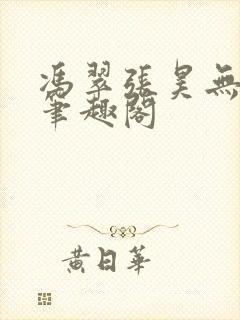 馮翠張昊無
筆趣閣
黃日華